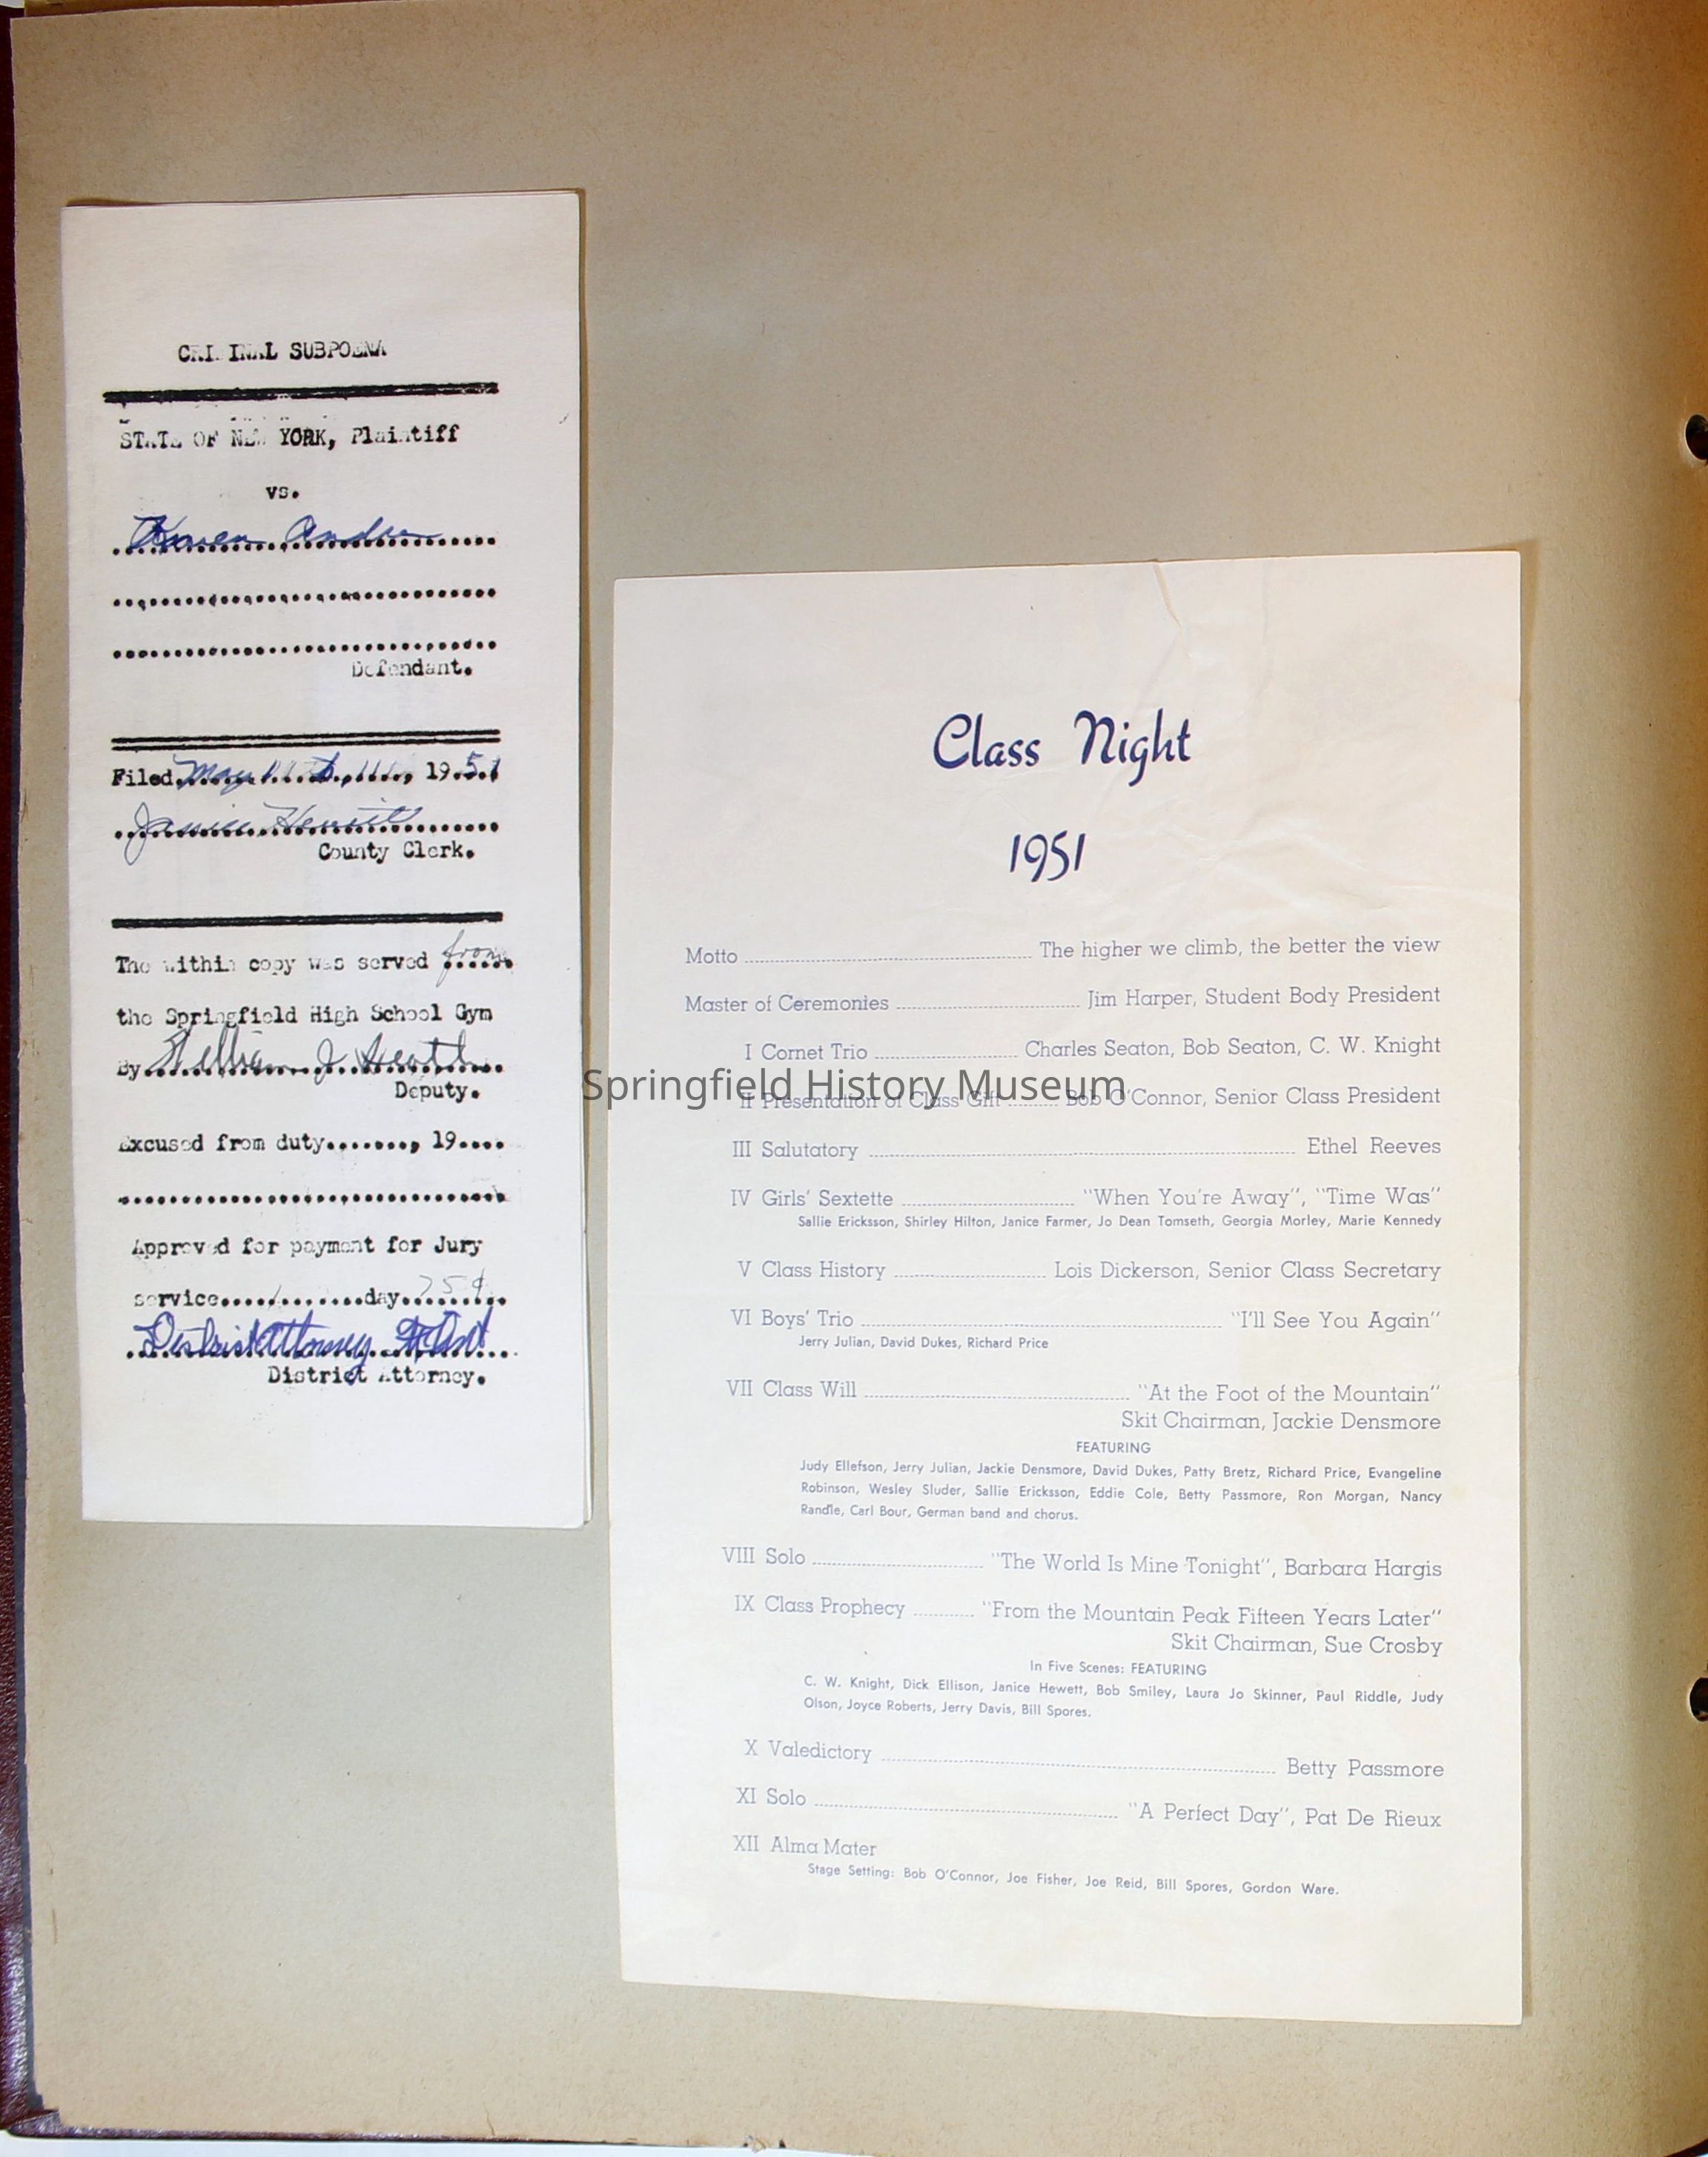 CRIMINAL SUBPOENA
STATE OF NEW YORK, Plaintiff
vs.
Karen Andre
Defendant.
Filed May 11, 1951
Janice Hewett
County Clerk.
The within copy was served from
the Springfield High School Gym
By William J. Scott
Deputy.
Excused from duty........, 19....
Approved for payment for Jury
service.....1.......day..75¢
District Attorney
District Attorney.
Class Night
1951
Motto ........ The higher we climb, the better the view
Master of Ceremonies ........ Jim Harper, Student Body President
I Cornet Trio ........ Charles Seaton, Bob Seaton, C. W. Knight
Springfield History Museum
II Presentation of Class Gift ........ Bob O'Connor, Senior Class President
III Salutatory ........ Ethel Reeves
IV Girls' Sextette ........ "When You're Away", "Time Was"
Sallie Ericksson, Shirley Hilton, Janice Farmer, Jo Dean Tomseth, Georgia Morley, Marie Kennedy
V Class History ........ Lois Dickerson, Senior Class Secretary
VI Boys' Trio ........ "I'll See You Again"
Jerry Julian, David Dukes, Richard Price
VII Class Will ........ "At the Foot of the Mountain"
Skit Chairman, Jackie Densmore
FEATURING
Judy Ellefson, Jerry Julian, Jackie Densmore, David Dukes, Patty Bretz, Richard Price, Evangeline
Robinson, Wesley Sluder, Sallie Ericksson, Eddie Cole, Betty Passmore, Ron Morgan, Nancy
Randle, Carl Bour, German band and chorus.
VIII Solo ........ "The World Is Mine Tonight", Barbara Hargis
IX Class Prophecy ........ "From the Mountain Peak Fifteen Years Later"
Skit Chairman, Sue Crosby
In Five Scenes: FEATURING
C. W. Knight, Dick Ellison, Janice Hewett, Bob Smiley, Laura Jo Skinner, Paul Riddle, Judy
Olson, Joyce Roberts, Jerry Davis, Bill Spores.
X Valedictory ........ Betty Passmore
XI Solo ........ "A Perfect Day", Pat De Rieux
XII Alma Mater
Stage Setting: Bob O'Connor, Joe Fisher, Joe Reid, Bill Spores, Gordon Ware.